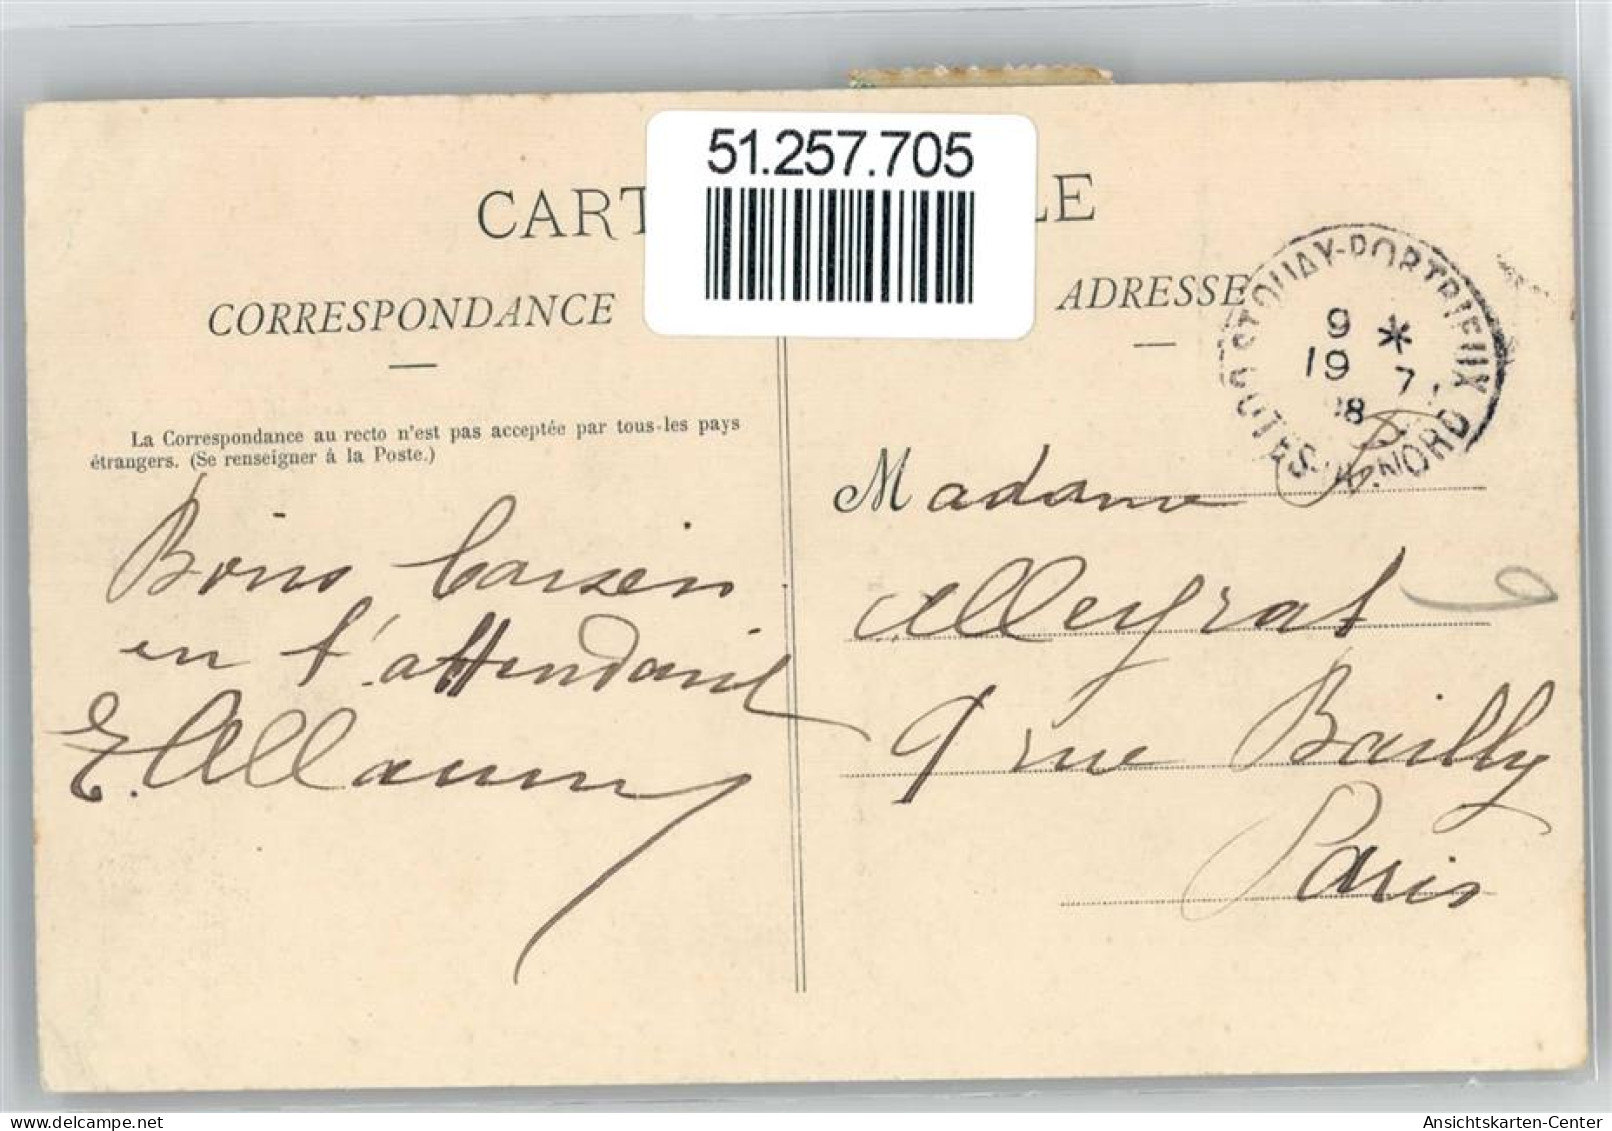 51.257.705
CART LE
CORRESPONDANCE
ADRESSE
ST QUAY-PORTRIEUX
9 *
19 7
08
NORD
La Correspondance au recto n'est pas acceptée par tous les pays
étrangers. (Se renseigner à la Poste.)
Madame
Alleyrat
9 rue Bailly
Paris
Bons
en t'attendant
E. Allaum
Ansichtskarten-Center